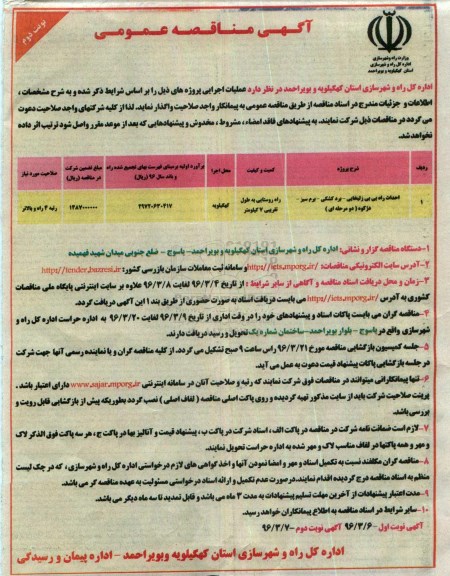 نوبت دوم
آگهی مناقصه عمومی
وزارت راه و شهرسازی
اداره کل راه و شهرسازی
استان کهگیلویه و بویراحمد
اداره کل راه و شهرسازی استان کهگیلویه و بویراحمد در نظر دارد عملیات اجرایی پروژه های ذیل را بر اساس شرایط ذکر شده و به شرح مشخصات ،
اطلاعات و جزئیات مندرج در اسناد مناقصه از طریق مناقصه عمومی به پیمانکار واجد صلاحیت واگذار نماید. لذا از کلیه شرکتهای واجد صلاحیت دعوت
می گردد در مناقصات ذیل شرکت نمایند. به پیشنهادهای فاقد امضاء ، مشروط ، مخدوش و پیشنهادهایی که بعد از موعد مقرر واصل شود ترتیب اثر داده
نخواهد شد.
ردیف شرح پروژه کمیت و کیفیت محل اجرا برآورد اولیه برمبنای فهرست بهای تجمیع شده راه و باند سال ۹۶ (ریال) مبلغ تضمین شرکت در مناقصه (ریال) صلاحیت مورد نیاز
۱ احداث راه بی بی زلیخایی - برد کشکی - نرم سبز - دژکوه ( دو مرحله ای ) راه روستایی به طول تقریبی ۷ کیلومتر کهگیلویه رتبه ۴ راه و بالاتر
۱- دستگاه مناقصه گزار و نشانی: اداره کل راه و شهرسازی استان کهگیلویه و بویراحمد- یاسوج - ضلع جنوبی میدان شهید فهمیده
۲- آدرس سایت الکترونیکی مناقصات: http://iets.mporg.ir/ و سامانه ثبت معاملات سازمان بازرسی کشور: http://tender.bazresi.ir
۳- زمان و محل دریافت اسناد مناقصه و آگاهی از سایر شرایط : از تاریخ ۹۶/۳/۴ لغایت ۹۶/۳/۸ علاوه بر سایت اینترنتی پایگاه ملی مناقصات
کشوری به آدرس http://iets.mporg.ir/ می بایست دریافت اسناد به صورت حضوری از طریق بند ۱ این آگهی دریافت گردد.
۴- مناقصه گران می بایست پاکات اسناد و پیشنهادهای خود را در وقت اداری از تاریخ ۹۶/۳/۹ لغایت ۹۶/۳/۲۰ به اداره حراست اداره کل راه و
شهرسازی واقع در یاسوج - بلوار بویراحمد-ساختمان شماره یک تحویل و رسید دریافت دارند.
۵- جلسه کمیسیون بازگشایی مناقصه مورخ ۹۶/۳/۲۱ راس ساعت ۹ صبح تشکیل می گردد. از کلیه مناقصه گران و یا نماینده رسمی آنها جهت شرکت
در جلسه بازگشایی پاکات پیشنهاد قیمت دعوت به عمل می آید.
۶- تنها پیمانکارانی میتوانند در مناقصات فوق شرکت نمایند که رتبه و صلاحیت آنان در سامانه اینترنتی www.sajar.mporg.ir دارای اعتبار باشد .
پرینت صلاحیت شرکت باید از سایت مذکور تهیه گردیده و روی پاکت اصلی مناقصه ( لفاف اصلی ) نصب گردد بطوریکه پیش از بازگشایی قابل رویت و
بررسی باشد.
۷- لازم است ضمانت نامه شرکت در مناقصه در پاکت الف ، اسناد شرکت در پاکت ب ، پیشنهاد قیمت و آنالیز بها در پاکت ج ، هر سه پاکت فوق الذکر لاک
و مهر و همه پاکتها در لفاف مناسب لاک و مهر شده به اداره حراست تحویل نمایند.
۸- مناقصه گران مکلفند نسبت به تکمیل اسناد و مهر و امضا نمودن آنها و اخذ گواهی های لازم درخواستی اداره کل راه و شهرسازی ، که در چک لیست
منظم به اسناد مناقصه درج گردیده اقدام نمایند. در صورت عدم تکمیل و ارائه اسناد درخواستی مسئولیت به عهده مناقصه گر می باشد.
۹- مدت اعتبار پیشنهادات از آخرین مهلت تسلیم پیشنهادات به مدت ۳ ماه می باشد و قابل تمدید تا سه ماه دیگر می باشد.
۱۰- سایر شرایط در اسناد مناقصه به اطلاع پیمانکاران خواهد رسید.
آگهی نوبت اول - ۹۶/۳/۶ آگهی نوبت دوم - ۹۶/۳/۷
اداره کل راه و شهرسازی استان کهگیلویه وبویراحمد - اداره پیمان و رسیدگی